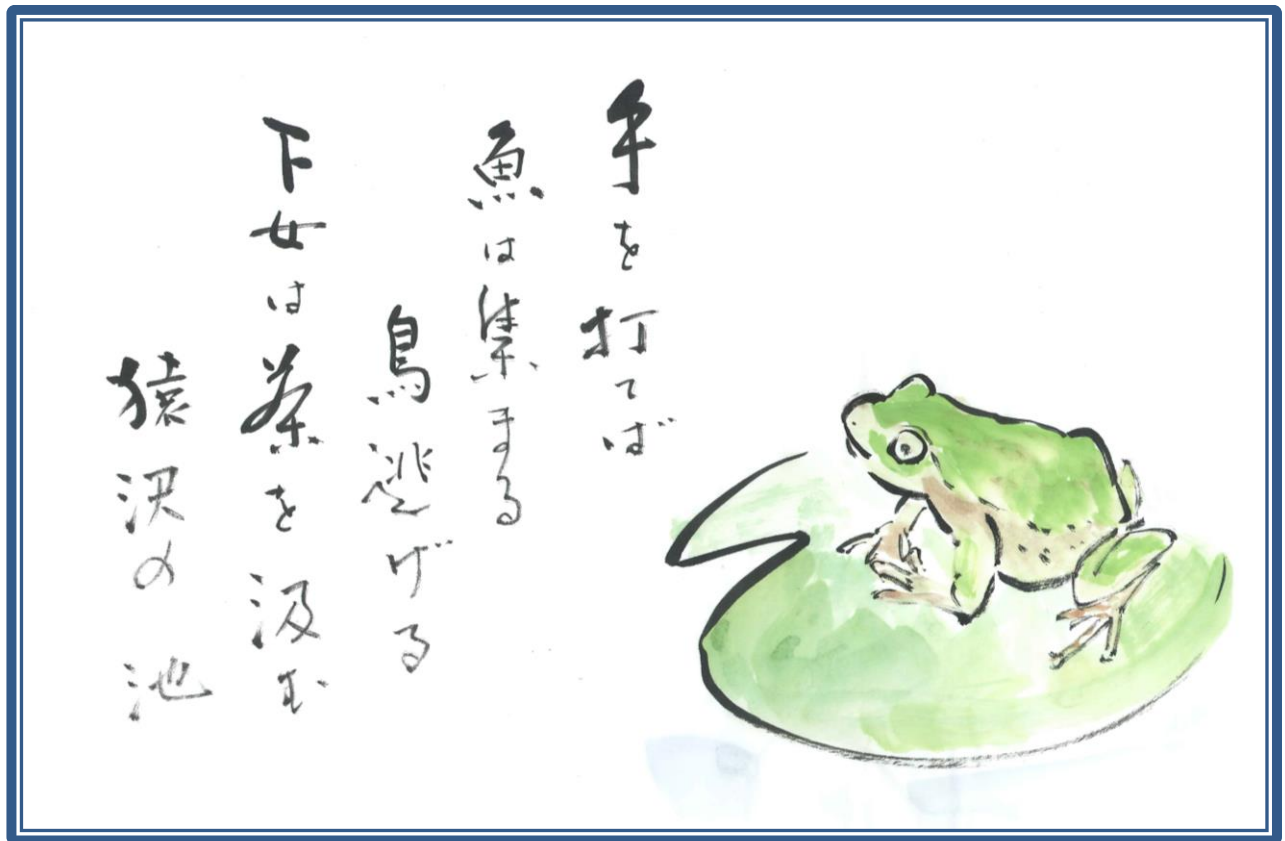 手を打てば
魚は集まる
鳥逃げる
下女は茶を汲む
猿沢の池